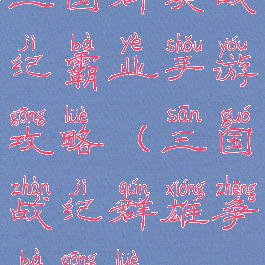 jì bà yè shǒu yóu
纪霸业手游
gōng lüè sān guó
攻略（三国
zhàn jì qún xióng zhēng
战纪群雄争
bà gōng lüè